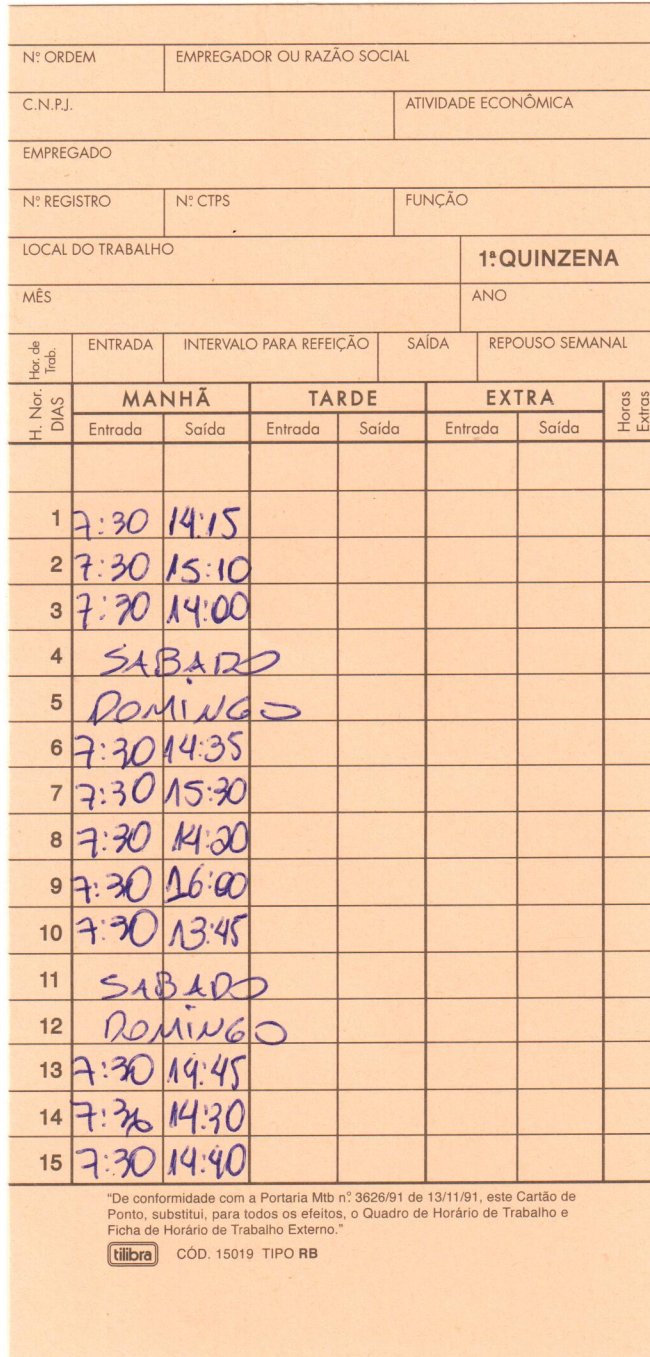 Nº ORDEM EMPREGADOR OU RAZÃO SOCIAL
C.N.P.J. ATIVIDADE ECONÔMICA
EMPREGADO
Nº REGISTRO Nº CTPS FUNÇÃO
LOCAL DO TRABALHO 1ª QUINZENA
MÊS ANO
Hor. de Trab. ENTRADA INTERVALO PARA REFEIÇÃO SAÍDA REPOUSO SEMANAL
H. Nor. DIAS MANHÃ TARDE EXTRA Horas Extras
Entrada Saída Entrada Saída Entrada Saída
1 7:30 14:15
2 7:30 15:10
3 7:30 14:00
4 SABADO
5 DOMINGO
6 7:30 14:35
7 7:30 15:30
8 7:30 14:20
9 7:30 16:00
10 7:30 13:45
11 SABADO
12 DOMINGO
13 7:30 14:45
14 7:30 14:30
15 7:30 14:40
"De conformidade com a Portaria Mtb nº 3626/91 de 13/11/91, este Cartão de
Ponto, substitui, para todos os efeitos, o Quadro de Horário de Trabalho e
Ficha de Horário de Trabalho Externo."
tilibra CÓD. 15019 TIPO RB